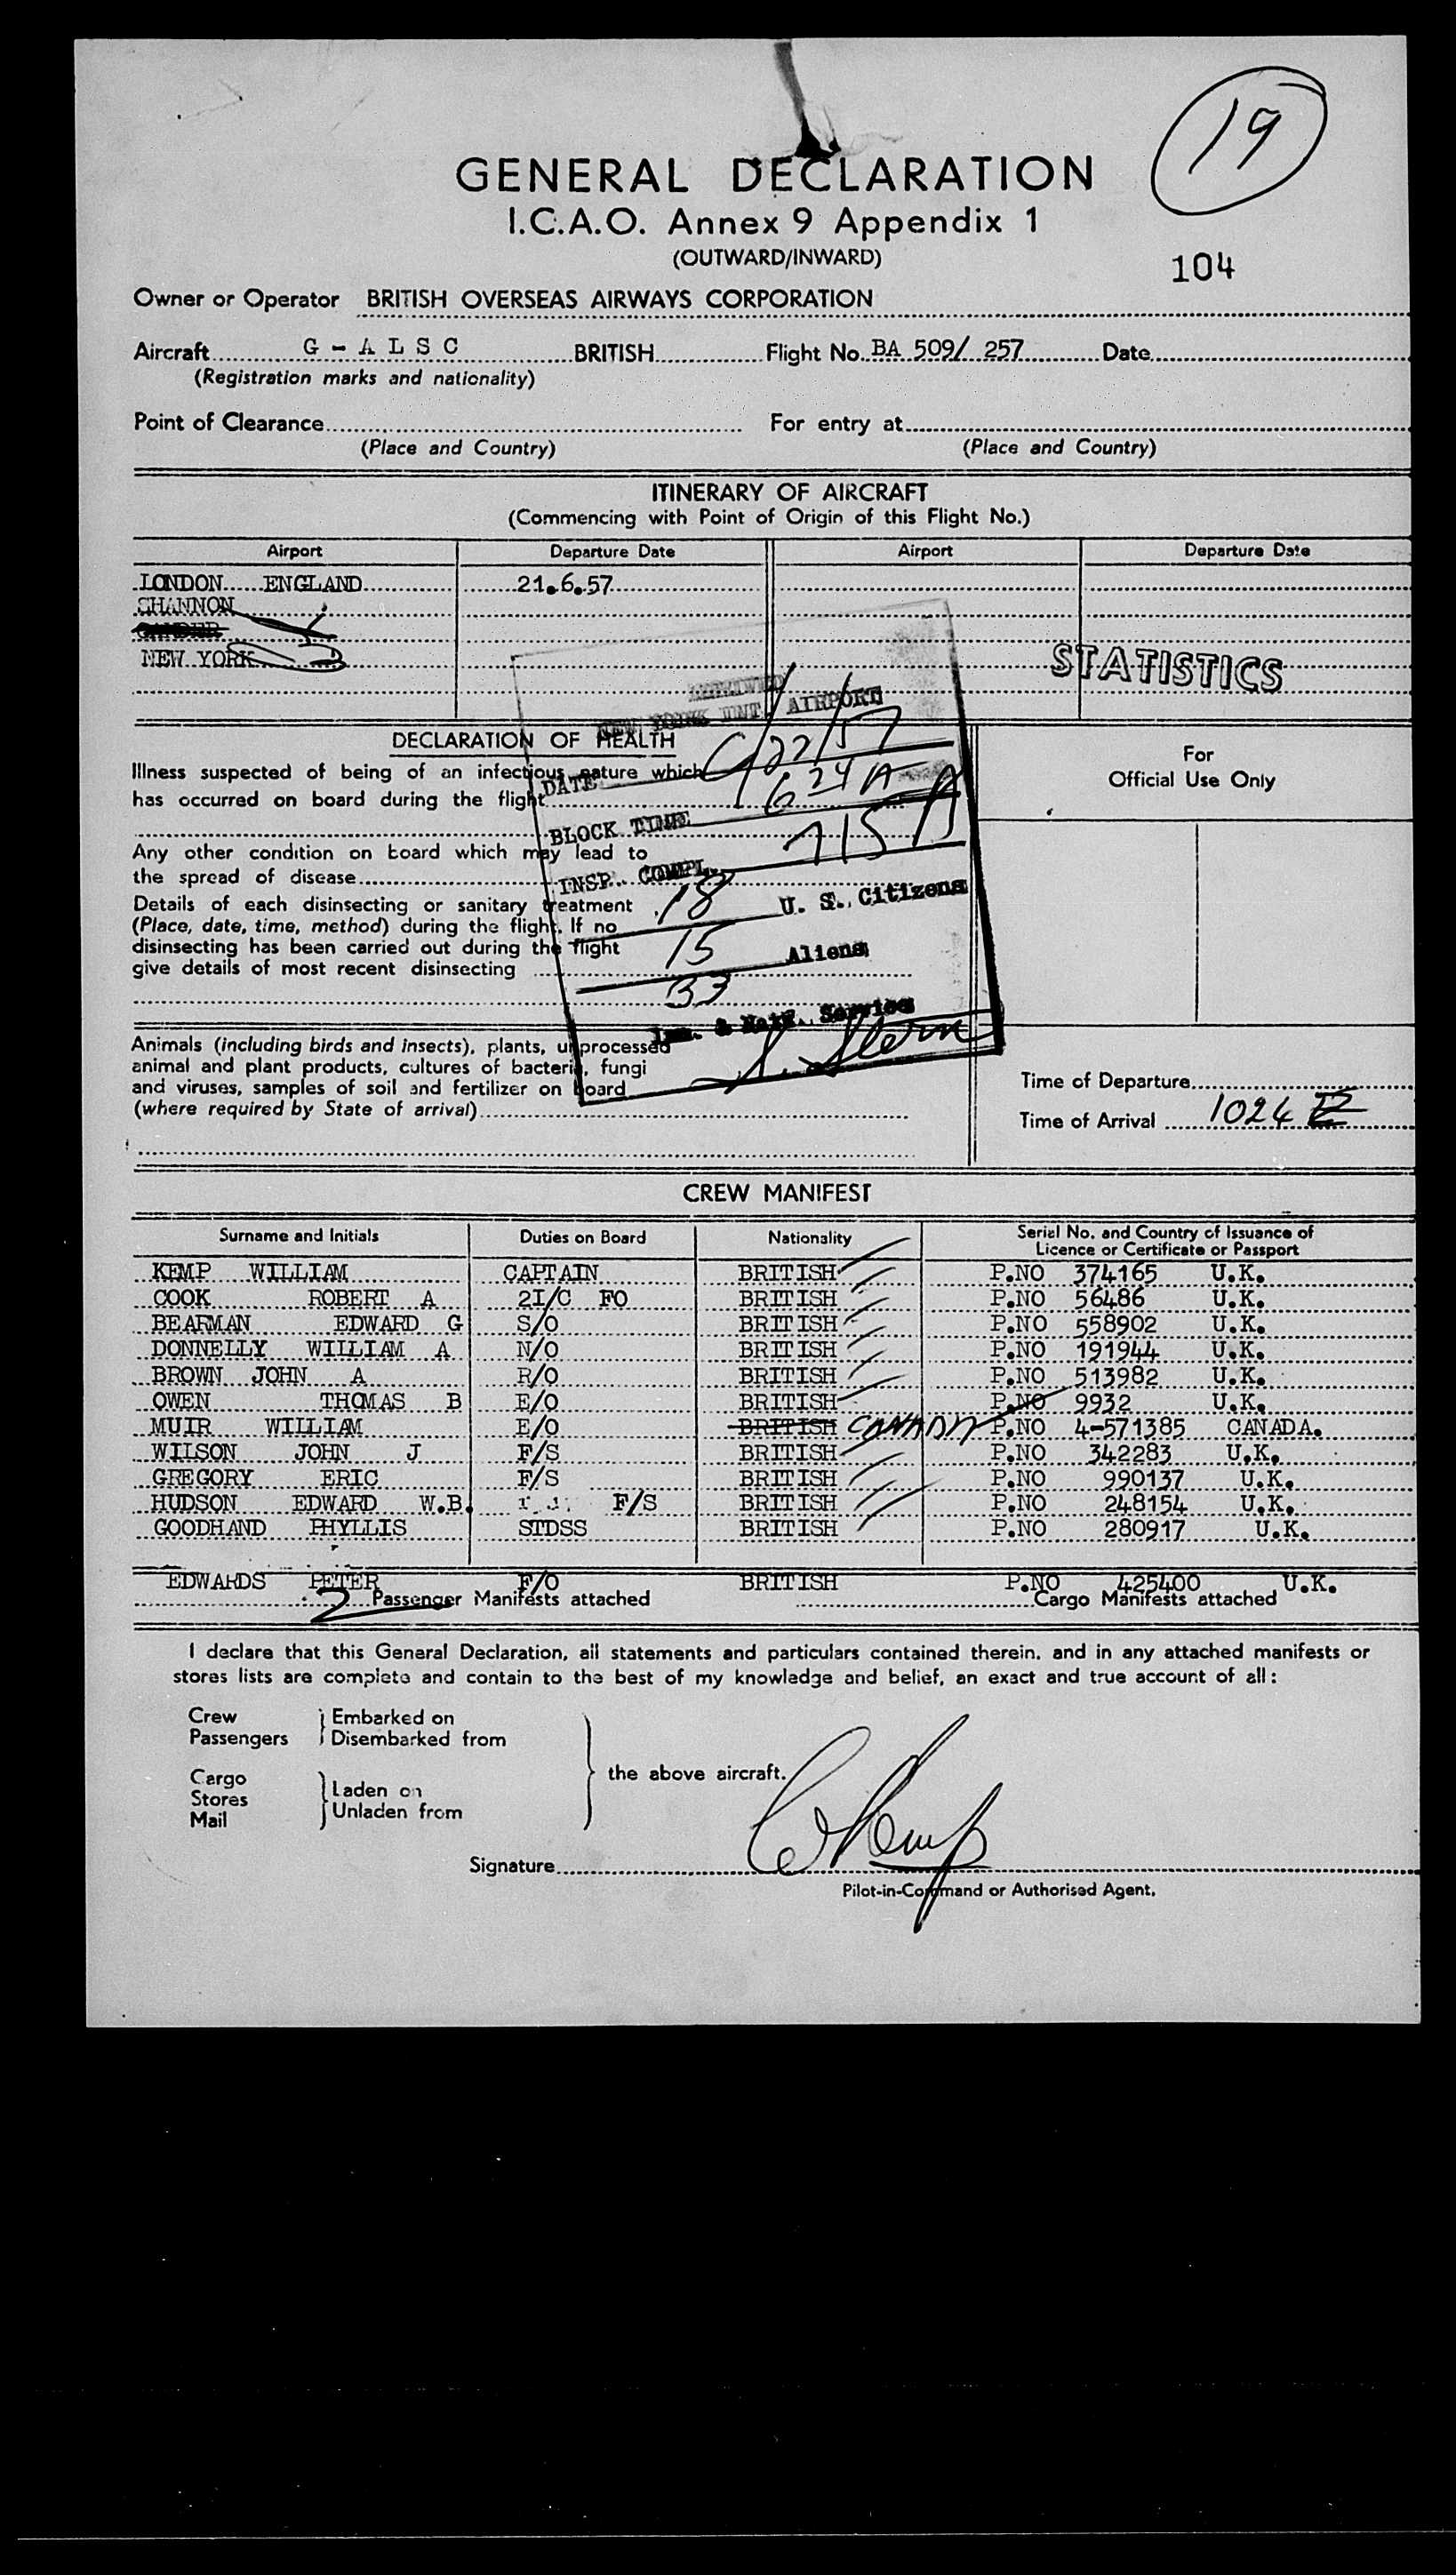 19
GENERAL DECLARATION
I.C.A.O. Annex 9 Appendix 1
(OUTWARD/INWARD)
104
Owner or Operator BRITISH OVERSEAS AIRWAYS CORPORATION
Aircraft G - A L S C BRITISH Flight No. BA 509/ 257 Date
(Registration marks and nationality)
Point of Clearance For entry at
(Place and Country) (Place and Country)
ITINERARY OF AIRCRAFT
(Commencing with Point of Origin of this Flight No.)
Airport Departure Date Airport Departure Date
LONDON ENGLAND 21.6.57
SHANNON
GANDER
NEW YORK
STATISTICS
ARRIVED
NEW YORK INT. AIRPORT
DATE 6/22/57
BLOCK TIME 624 A
INSP. COMPL. 715 A
18 U. S. Citizens
15 Aliens
33
Imm. & Natz. Service
S. Stern
DECLARATION OF HEALTH
Illness suspected of being of an infectious nature which
has occurred on board during the flight
Any other condition on board which may lead to
the spread of disease
Details of each disinsecting or sanitary treatment
(Place, date, time, method) during the flight. If no
disinsecting has been carried out during the flight
give details of most recent disinsecting
For
Official Use Only
Animals (including birds and insects), plants, unprocessed
animal and plant products, cultures of bacteria, fungi
and viruses, samples of soil and fertilizer on board
(where required by State of arrival)
Time of Departure
Time of Arrival 1024 Z
CREW MANIFEST
Surname and Initials Duties on Board Nationality Serial No. and Country of Issuance of
Licence or Certificate or Passport
KEMP WILLIAM CAPTAIN BRITISH P.NO 374165 U.K.
COOK ROBERT A 2I/C FO BRITISH P.NO 56486 U.K.
BEARMAN EDWARD G S/O BRITISH P.NO 558902 U.K.
DONNELLY WILLIAM A N/O BRITISH P.NO 191944 U.K.
BROWN JOHN A R/O BRITISH P.NO 513982 U.K.
OWEN THOMAS B E/O BRITISH P.NO 9932 U.K.
MUIR WILLIAM E/O BRITISH CANADA P.NO 4-571385 CANADA.
WILSON JOHN J F/S BRITISH P.NO 342283 U.K.
GREGORY ERIC F/S BRITISH P.NO 990137 U.K.
HUDSON EDWARD W.B. F/S BRITISH P.NO 248154 U.K.
GOODHAND PHYLLIS STDSS BRITISH P.NO 280917 U.K.
EDWARDS PETER F/O BRITISH P.NO 425400 U.K.
2 Passenger Manifests attached Cargo Manifests attached
I declare that this General Declaration, all statements and particulars contained therein, and in any attached manifests or
stores lists are complete and contain to the best of my knowledge and belief, an exact and true account of all:
Crew Embarked on
Passengers Disembarked from
the above aircraft.
Cargo
Stores Laden on
Mail Unladen from
Signature W Kemp
Pilot-in-Command or Authorised Agent.